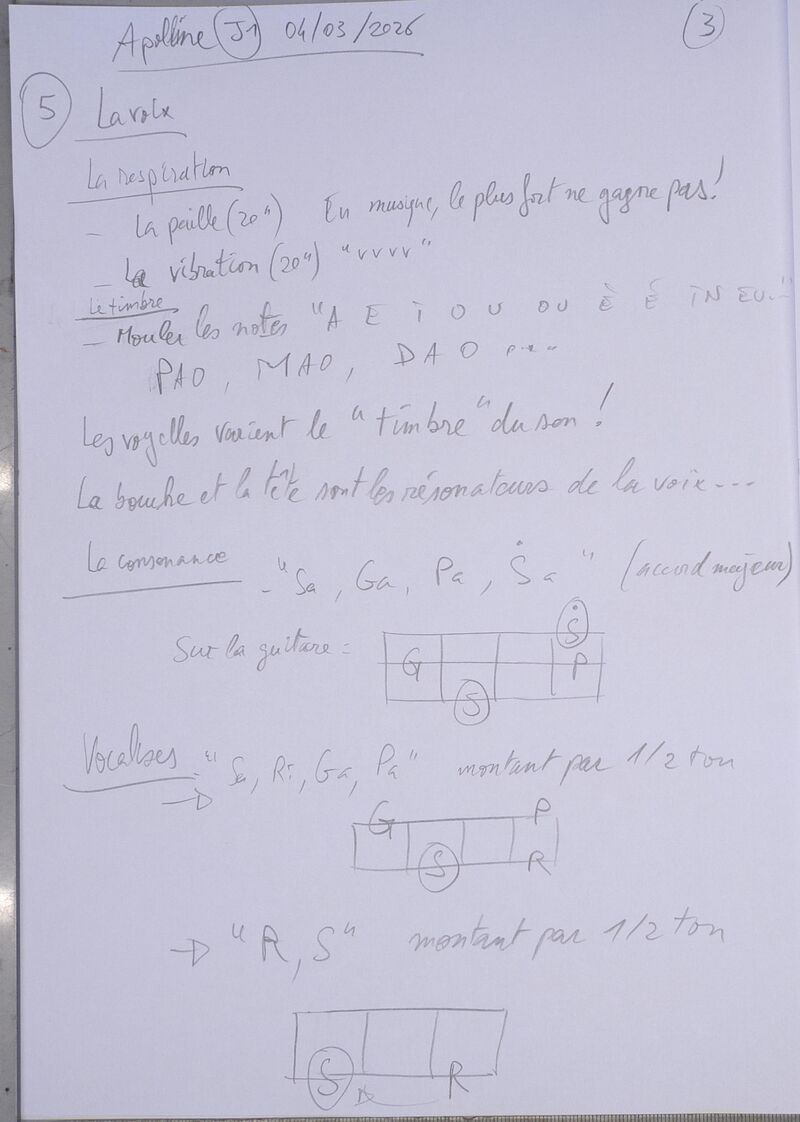 Apolline J1 04/03/2026 3
5 La voix
La respiration
- La paille (20") En musique, le plus fort ne gagne pas!
- La vibration (20") "vvvv"
Le timbre
- Mouler les notes "A E I O U OU È É IN EU..."
PAO, MAO, DAO ....
Les voyelles varient le "timbre" du son!
La bouche et la tête sont les résonateurs de la voix...
La consonance - "Sa, Ga, Pa, Ṡa" (accord majeur)
Sur la guitare =
Ṡ
G P
S
Vocalises - "Sa, Ri, Ga, Pa" montant par 1/2 ton
G P
S R
→ "R, S" montant par 1/2 ton
S R